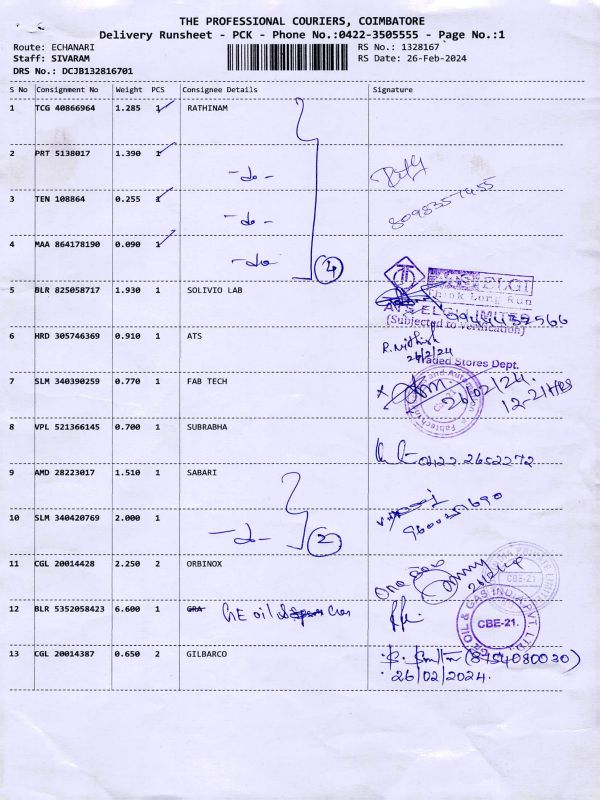 THE PROFESSIONAL COURIERS, COIMBATORE
Delivery Runsheet - PCK - Phone No.:0422-3505555 - Page No.:1
Route: ECHANARI RS No.: 1328167
Staff: SIVARAM RS Date: 26-Feb-2024
DRS No.: DCJB132816701
S No Consignment No Weight PCS Consignee Details Signature
1 TCG 40866964 1.285 1 RATHINAM
2 PRT 5138017 1.390 1 -do-
3 TEN 108864 0.255 1 -do- 8098357455
4 MAA 864178190 0.090 1 -do- 4
ELGI
Think Long Run
5 BLR 825058717 1.930 1 SOLIVIO LAB
(Subjected to Verification)
6 HRD 305746369 0.910 1 ATS R.Nithish
26/2/24
Traded Stores Dept.
7 SLM 340390259 0.770 1 FAB TECH 26/02/24.
12-21 HRS
8 VPL 521366145 0.700 1 SUBRABHA
0422.2652272
9 AMD 28223017 1.510 1 SABARI
10 SLM 340420769 2.000 1 -do- 2
11 CGL 20014428 2.250 2 ORBINOX
CBE-21
12 BLR 5352058423 6.600 1 GRA GE oil Gas
OIL & GAS INDIA PVT. LTD.
CBE-21.
13 CGL 20014387 0.650 2 GILBARCO (8754080030)
26/02/2024.